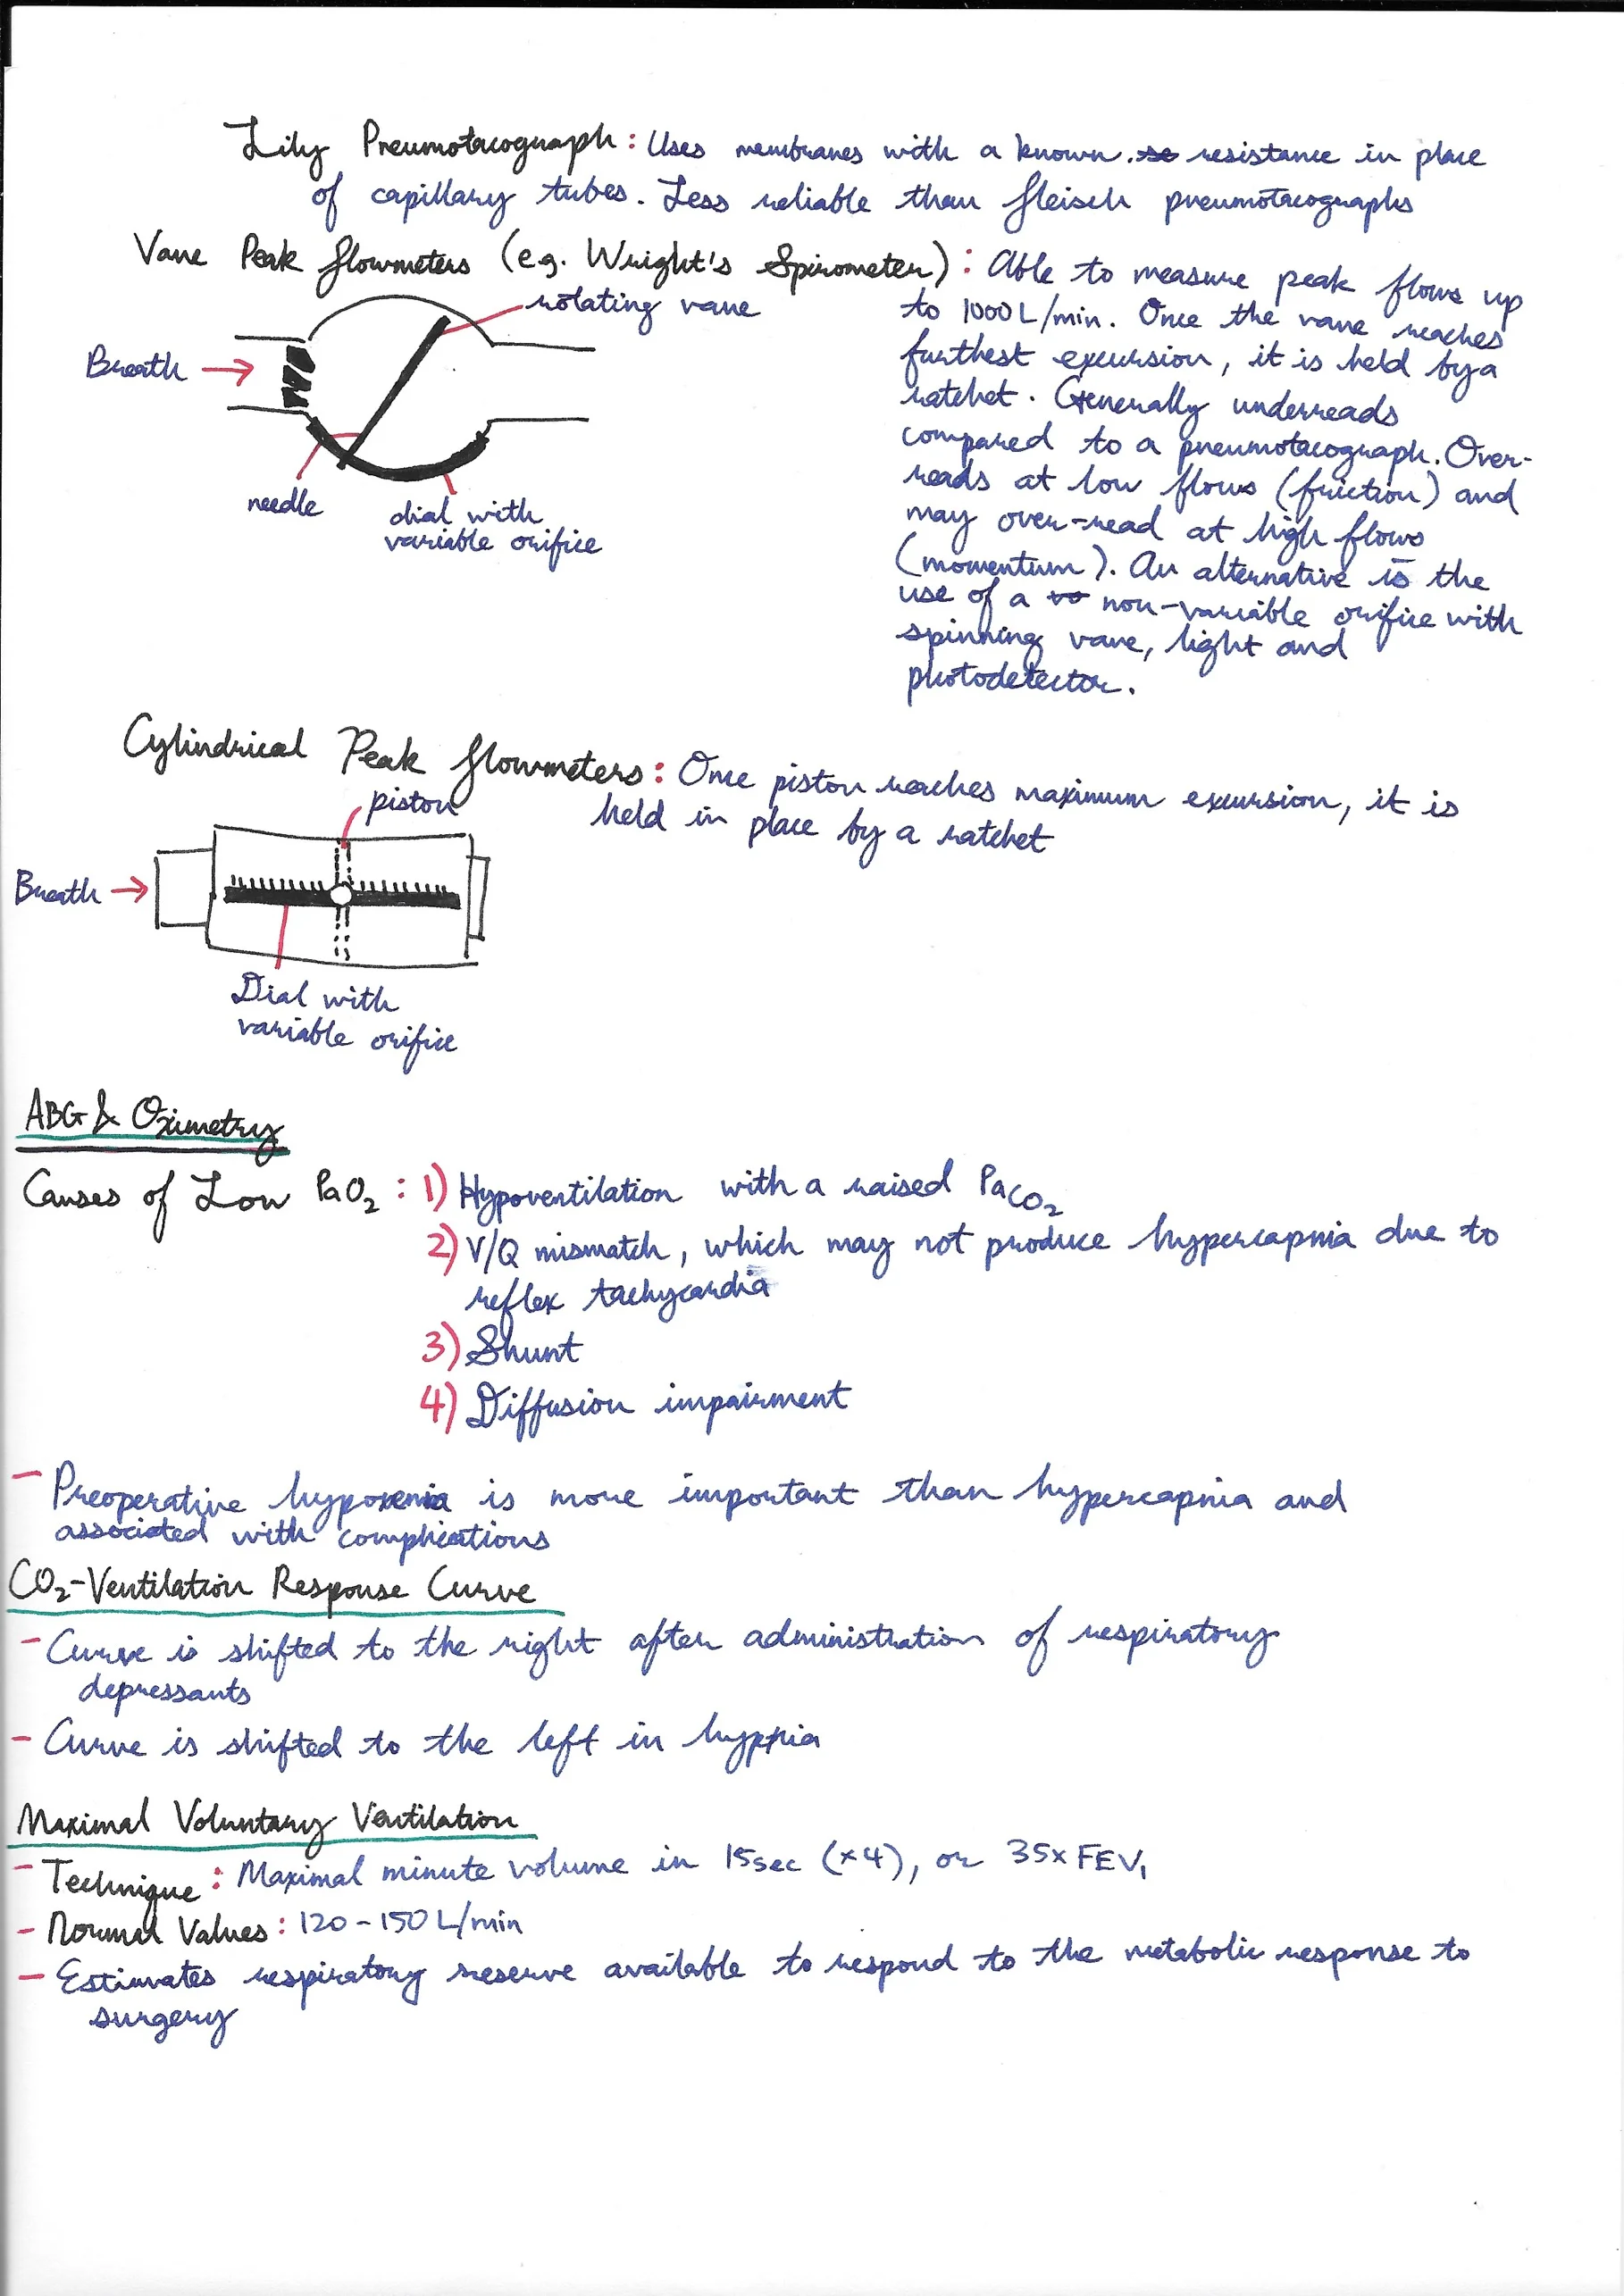 Lily Pneumotacograph: Uses membranes with a known resistance in place
of capillary tubes. Less reliable than fleisch pneumotacographs
Vane Peak flowmeters (eg. Wright's Spirometer): Able to measure peak flows up
to 1000 L/min. Once the vane reaches
furthest excursion, it is held by a
ratchet. Generally underreads
compared to a pneumotacograph. Over-
reads at low flows (friction) and
may over-read at high flows
(momentum). An alternative is the
use of a non-variable orifice with
spinning vane, light and
photodetector.
rotating vane
Breath →
needle
dial with
variable orifice
Cylindrical Peak flowmeters: Once piston reaches maximum excursion, it is
held in place by a ratchet
piston
Breath →
Dial with
variable orifice
ABG & Oximetry
Causes of Low PaO₂: 1) Hypoventilation with a raised PaCO₂
2) V/Q mismatch, which may not produce hypercapnia due to
reflex tachycardia
3) Shunt
4) Diffusion impairment
- Preoperative hypoxemia is more important than hypercapnia and
associated with complications
CO₂-Ventilation Response Curve
- Curve is shifted to the right after administration of respiratory
depressants
- Curve is shifted to the left in
Maximal Voluntary Ventilation
- Technique: Maximal minute volume in 15sec (x4), or 35x FEV₁
- Normal Values: 120-150 L/min
- Estimates respiratory reserve available to respond to the metabolic response to
surgery